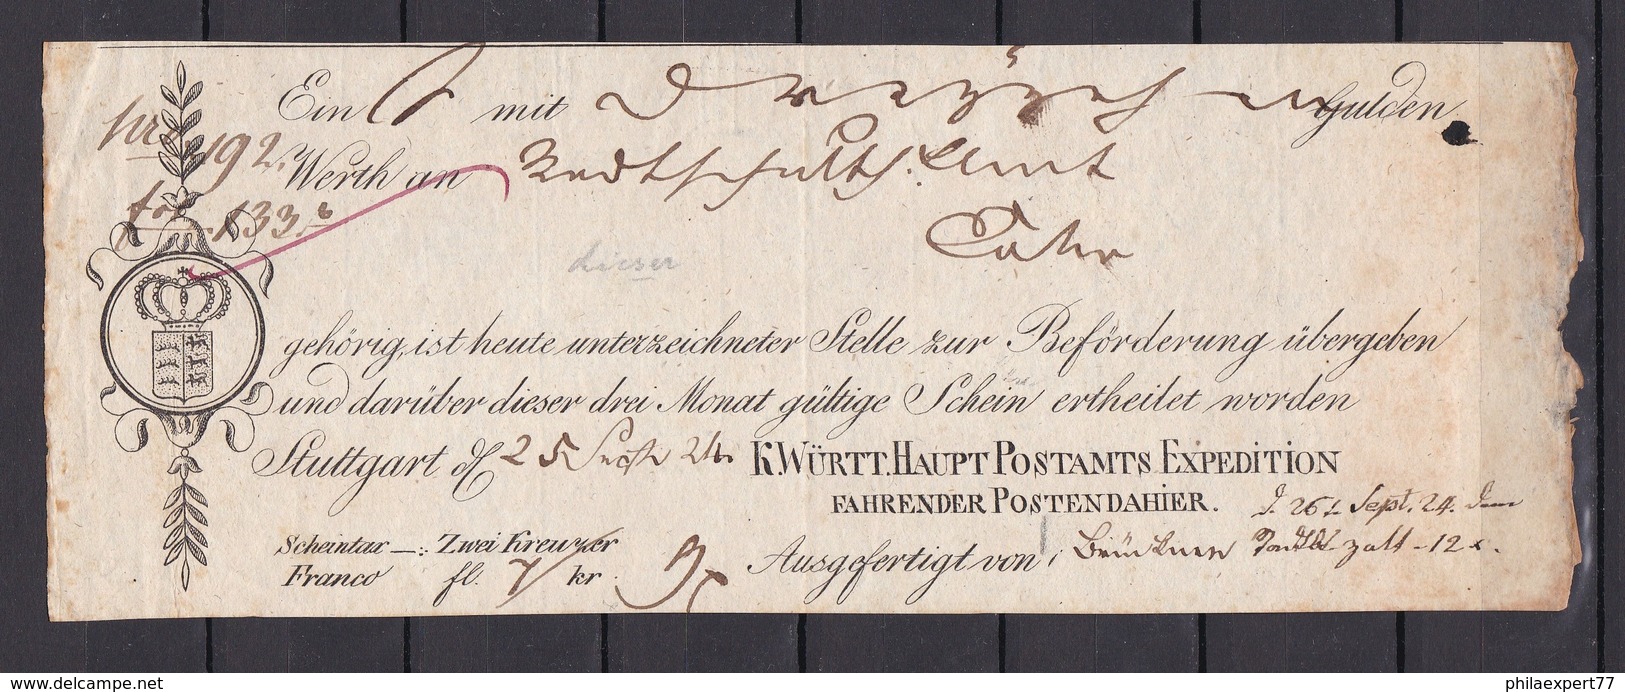 Ein mit Dreizehn Gulden
Nro 192. Werth an Stadtschulth. Amt
133.
dieser
gehörig, ist heute unterzeichneter Stelle zur Beförderung übergeben
und darüber dieser drei Monat gültige Schein ertheilet worden
Stuttgart d 25 24. K. WÜRTT. HAUPT POSTAMTS EXPEDITION
FAHRENDER POSTEN DAHIER. d. 26t Sept. 24. dem
Scheintax —:: Zwei Kreuzer
Ausgefertigt von zalt – 12 x.
Franco fl. 7 kr. 9x
delcampe.net
philaexpert77